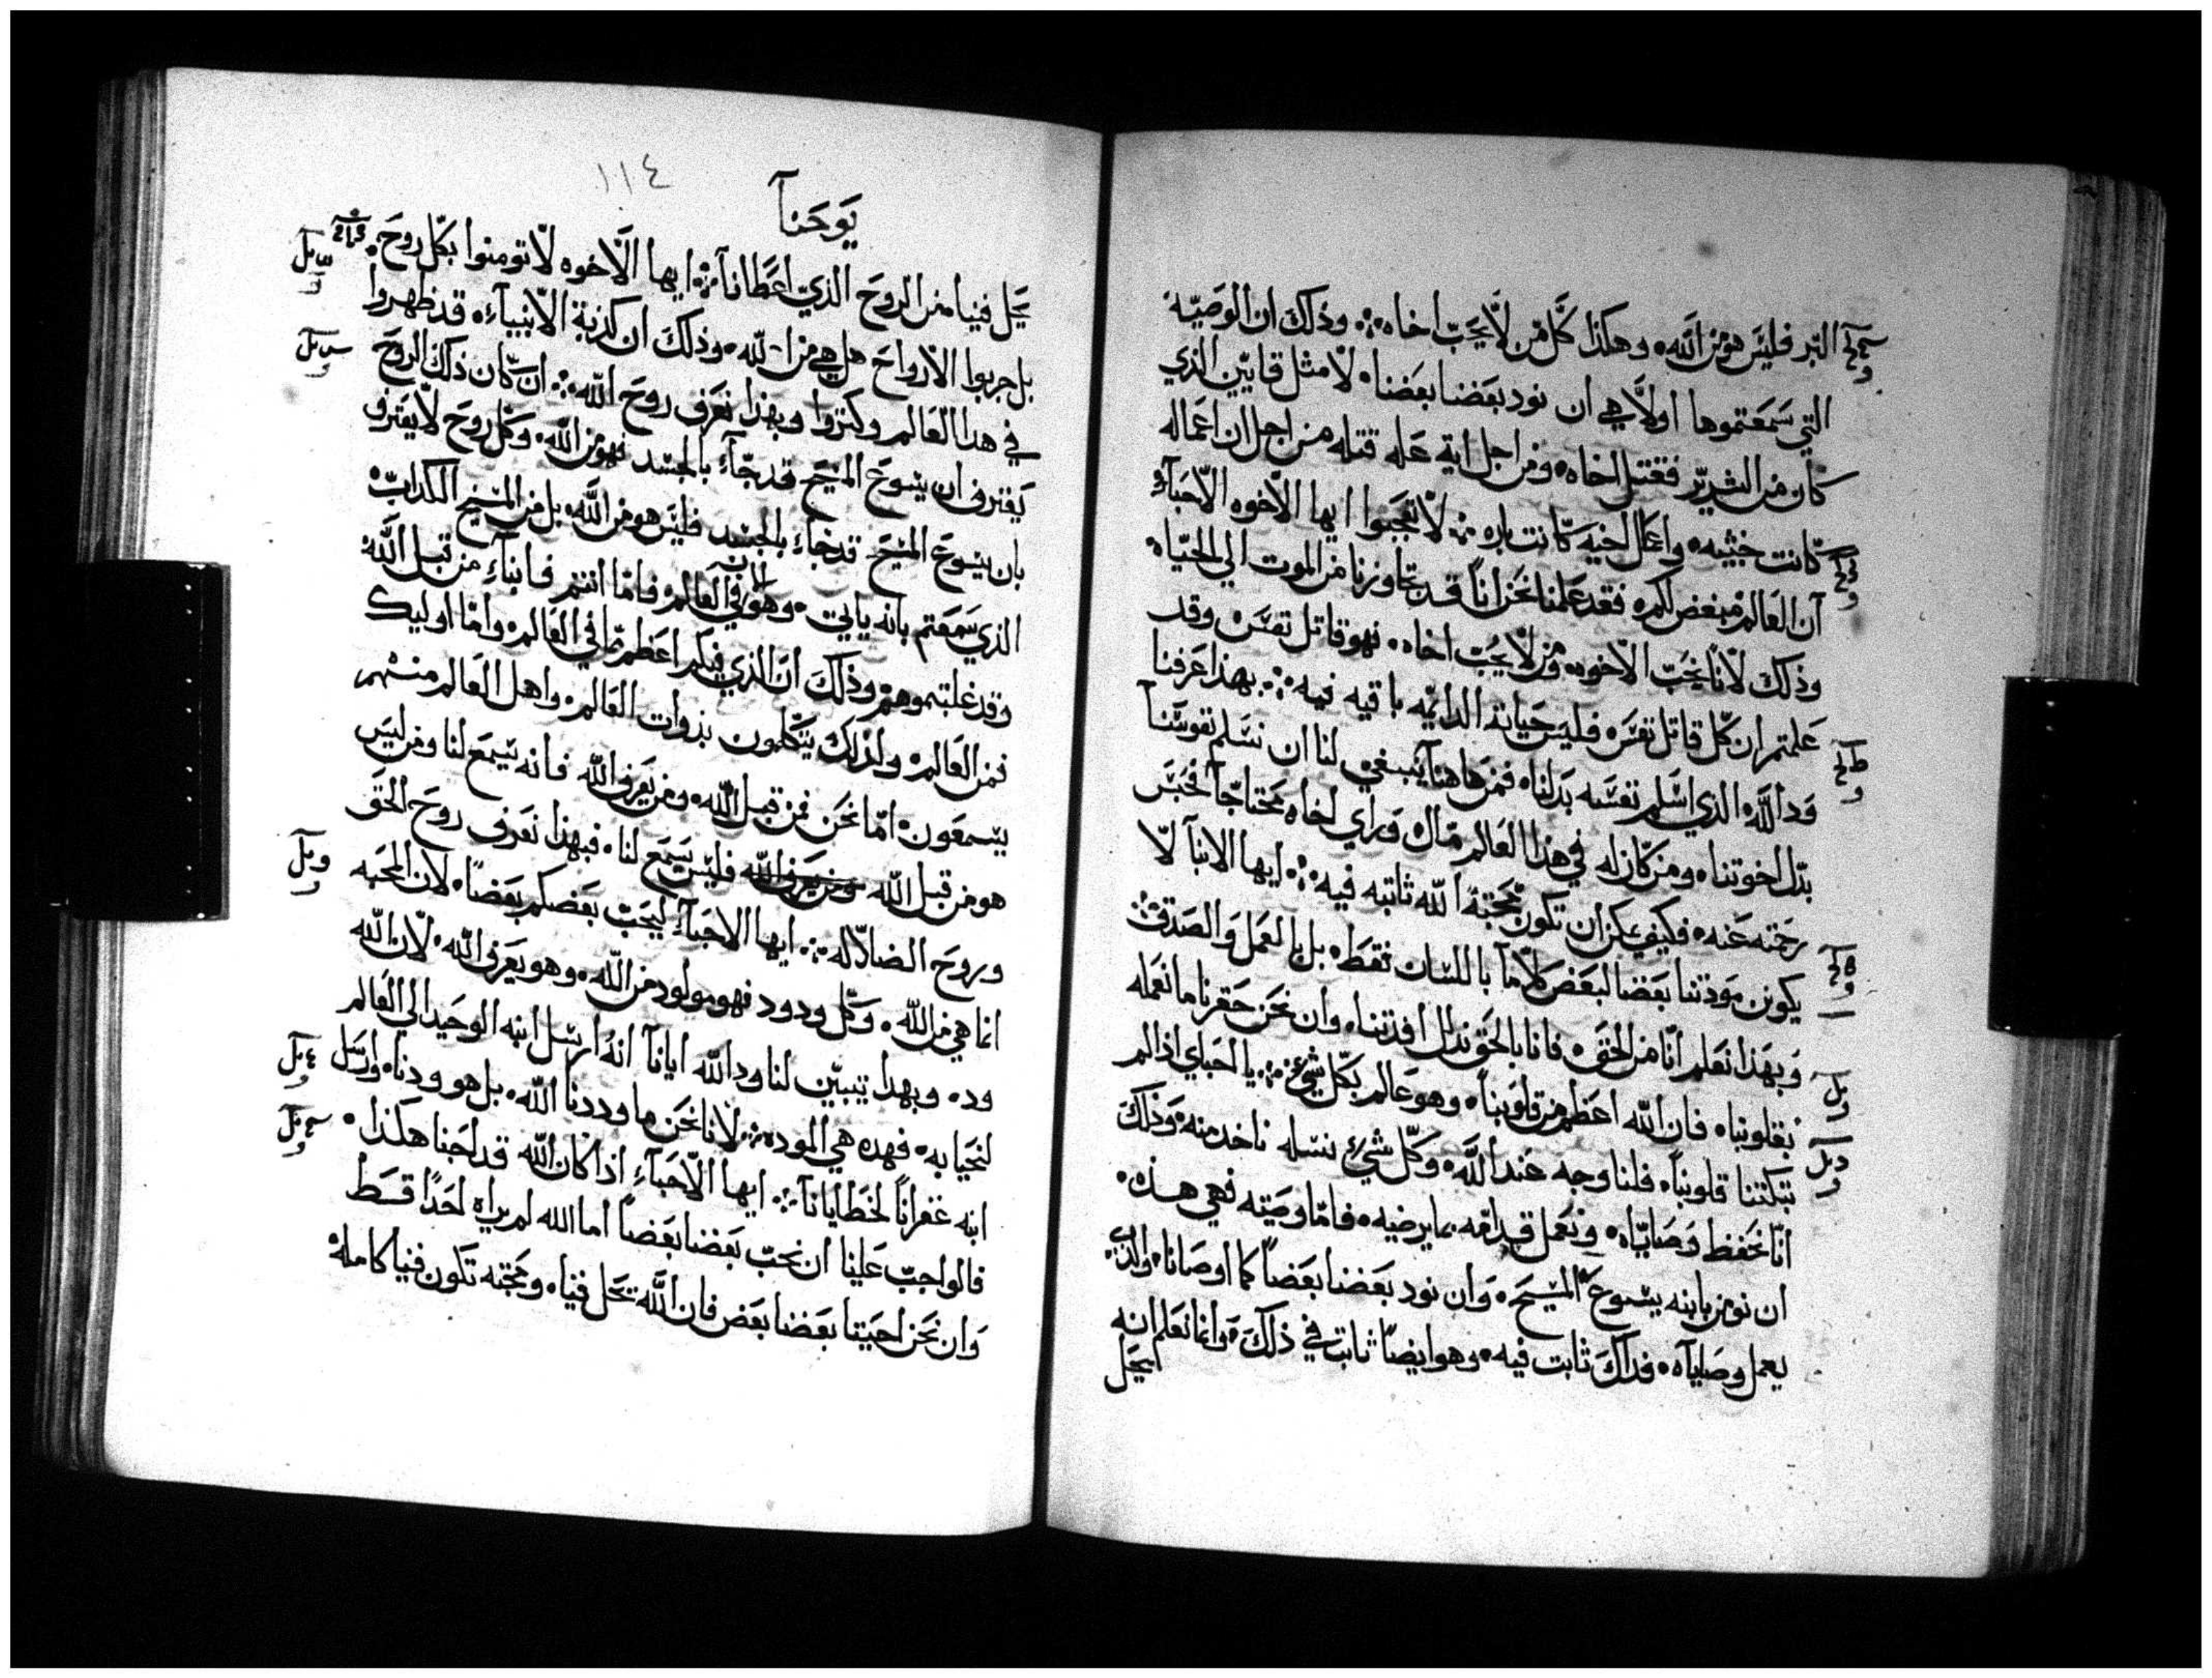 البر فليس هو من الله، وهكذا كل من لا يحب اخاه ⁘ وذلك ان الوصيه
التي سمعتموها اولا هي ان نود بعضنا بعضنا، لا مثل قايين الذي
كان من الشرير فقتل اخاه، ومن اجل اية عله قتله من اجل ان اعماله
كانت خبيثه، واعمال اخيه كانت باره ⁘ لا تعجبوا ايها الاخوه الاحبآء
ان العالم مبغض لكم، فقد علمنا نحن انا قد تجاوزنا من الموت الي الحياه
وذلك لانا نحب الاخوه، ومن لا يحب اخاه، فهو قاتل نفس، وقد
علمتم ان كل قاتل نفس، فليس حياته الدايمه باقيه فيه ⁘ بهذا عرفنا
ود الله الذي اسلم نفسه بدلنا، فمن هاهنا ينبغي لنا ان نسلم نفوسنا
بدل اخوتنا، ومن كان له في هذا العالم مال، وراي اخاه محتاجا فحبس
رحمته عنه، فكيف يمكن ان تكون محبة الله ثابته فيه ⁘ ايها الابنآ لا
يكونن مودتنا بعضنا لبعض كلاما باللسان فقط، بل بالعمل والصدق ⁘
وبهذا نعلم انا من الحق، فانا بالحق ندل افدتنا، وان نحن حقرنا ما نعمله
بقلوبنا، فان الله اعظم من قلوبنا، وهو عالم بكل شيء ⁘ يا احباي اذا لم
تبكتنا قلوبنا، فلنا وجه عند الله، وكل شيء نسله ناخد منه، وذلك
انا نحفظ وصاياه، ونعمل قدامه بما يرضيه، فاما وصيته فهي هذه،
ان نومن بابنه يسوع المسيح، وان نود بعضنا بعضا كما اوصانا، والذي
يعمل وصاياه، فداك ثابت فيه، وهو ايضا ثابت في ذلك، وانما نعلم انه
يحل
١١٤
يوحنا
يحل فينا من الروح الذي اعطانا ⁘ ايها الاخوه لا تومنوا بكل روح،
بل جربوا الارواح هل هي من الله، وذلك ان كذبة الانبيآء، قد ظهروا
في هدا العالم وكثروا وبهذا نعرف روح الله ⁘ ان كان ذلك الروح
يعترف ان يسوع المسيح قد جآء بالجسد فهو من الله، وكل روح لا يعترف
بان يسوع المسيح قد جاء بالجسد فليس هو من الله، بل من المسيح الكداب،
الذي سمعتم بانه ياتي، وهو الان في العالم، فاما انتم فابناء من قبل الله
وقد غلبتموهم، وذلك ان الذي فيكم اعظم مما في العالم، واما اوليك
فمن العالم، ولذلك يتكلمون بذوات العالم، واهل العالم منهم
يسمعون، اما نحن فمن قبل الله، ومن يعرف الله فانه يسمع لنا ومن ليس
هو من قبل الله ومن يعرف الله فليس يسمع لنا، فبهذا نعرف روح الحق
وروح الضلاله ⁘ ايها الاحبآء ليحب بعضكم بعضا، لان المحبه
انما هي من الله، وكل ودود فهو مولود من الله، وهو يعرف الله، لان الله
ود، وبهدا يتبين لنا ود الله ايانا انه ارسل ابنه الوحيد الي العالم
لنحيا به، فهده هي الموده ⁘ لانا نحن ما وددنا الله، بل هو ودنا، وارسل
ابنه غفرانا لخطايانا ⁘ ايها الاحبآء اذا كان الله قد احبنا هكذا،
فالواجب علينا ان نحب بعضنا بعضا اما الله لم يراه احدا قط
وان نحن احببنا بعضنا بعض فان الله يحل فينا، ومحبته تكون فينا كامله